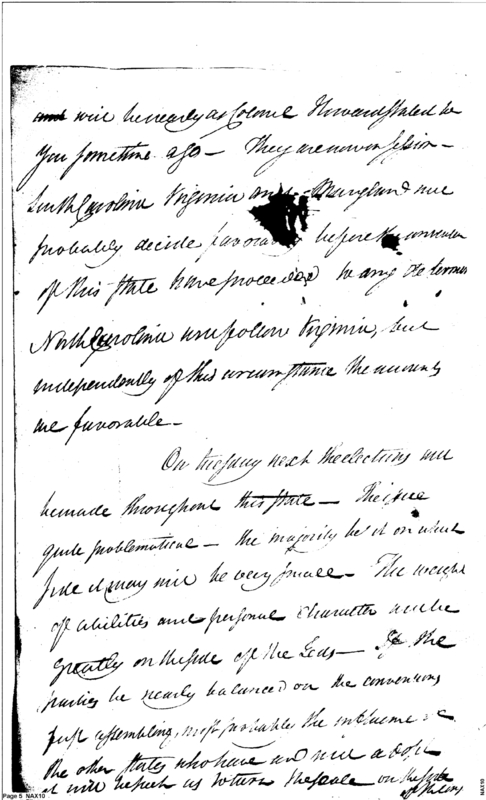 and will be nearly as Colonel Howard stated to
you sometime ago — They are now in session —
South Carolina Virginia and Maryland will
probably decide favorably before the convention
of this state have proceeded to any determi
North Carolina will follow Virginia, but
independently of this circumstance the accounts
are favorable —
On tuesday next the elections will
be made throughout this state — The issue
quite problematical — the majority be it on what
side it may will be very small — The weight
of abilities and personal character will be
greatly on the side of the Feds — If the
parties be nearly balanced on the conventions
first assembling, most probably the influence of
the other states who have and will adopt
it will help us to turn the scale on the side
of
Page 5 NAX10
NAX10